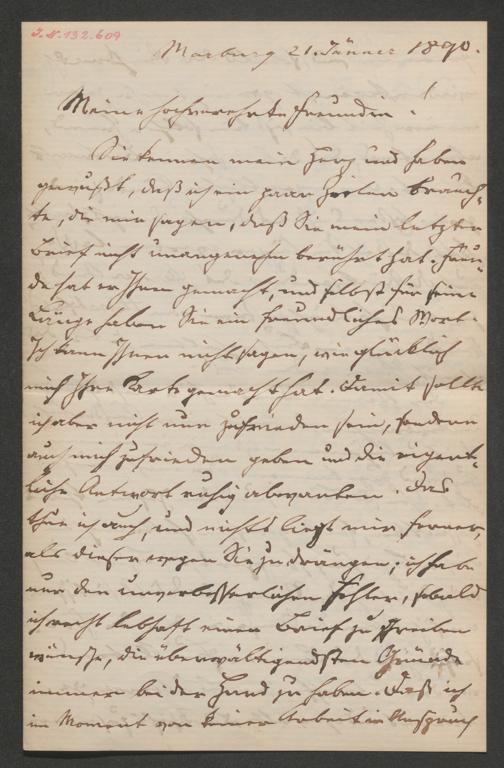 J.N. 132.609
Marburg 21. Jänner 1890.
Meine hochverehrte Freundin!
Sie kennen mein Herz und haben
gewußt, daß ich ein paar Zeilen brauch-
te, die mir sagen, daß Sie mein letzter
Brief nicht unangenehm berührt hat. Freu-
de hat er Ihnen gemacht, und selbst für seine
Länge haben Sie ein freundliches Wort.
Ich kann Ihnen nicht sagen, wie glücklich
mich Ihre Karte gemacht hat. Damit sollte
ich aber nicht nur zufrieden sein, sondern
auch mich zufrieden geben und die eigent-
liche Antwort ruhig abwarten. Das
thue ich auch, und nichts liegt mir ferner,
als dieserwegen Sie zu drängen; ich habe
nur den unverbesserlichen Fehler, sobald
ich recht lebhaft einen Brief zu schreiben
wünsche, die überwältigendsten Gründe
immer bei der Hand zu haben. Daß ich
im Moment von keiner Arbeit in Anspruch